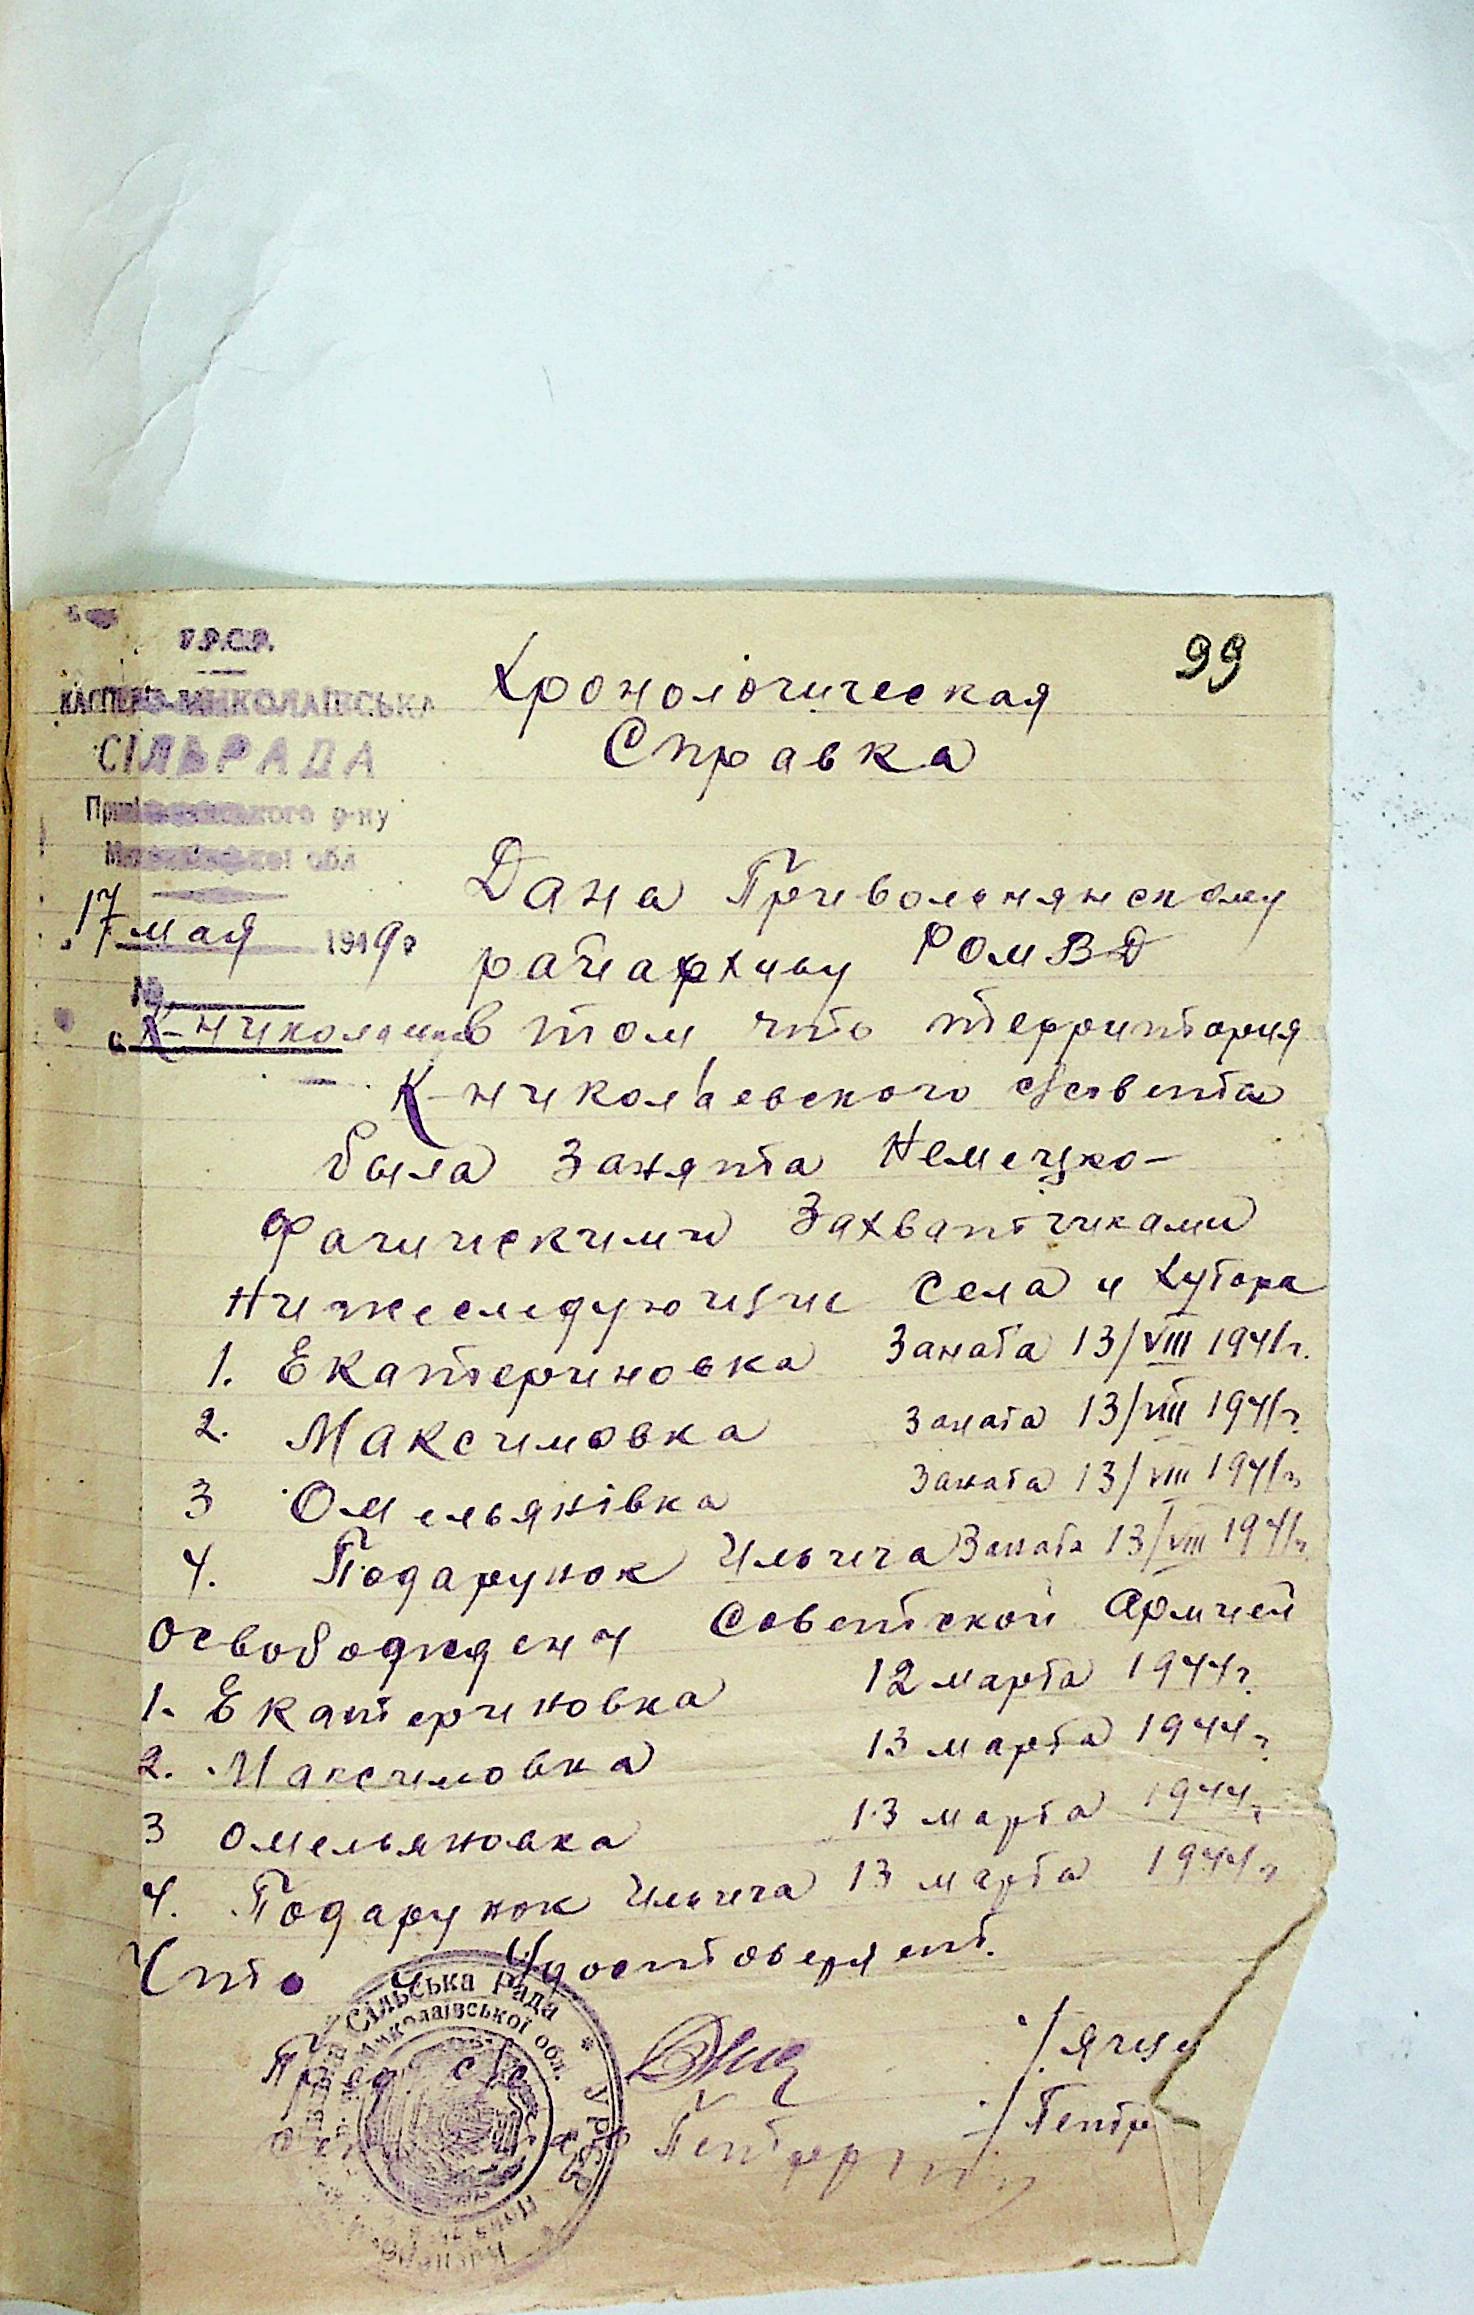 99
У.Р.С.Р.
КАСПЕРО-МИКОЛАЇВСЬКА
СІЛЬРАДА
р-ну
обл
17 мая 1949 г
№
с. К-Николаевка
Хронологическая
Справка
Дана Привольнянскому
райархиву РОМВД
в том что территория
К-Николаевского с/совета
была Занята Немецко-
фашискими Захватчиками
Нижеследующие Села и Хутора
1. Екатериновка Заната 13/VIII 1941г.
2. Максимовка Заната 13/VIII 1941г.
3 Омельянівка Заната 13/VIII 1941г.
4. Подарунок Ильича Заната 13/VIII 1941г.
Освобождены Советской Армией
1. Екатериновка 12 марта 1944г.
2. Максимовка 13 марта 1944г.
3 Омельяновка 13 марта 1944г.
4. Подарунок Ильича 13 марта 1944г.
Что и Удостоверяет.
Пред с/с /Яцу
/Петр
Сільська Рада * УРСР
Миколаївської обл.